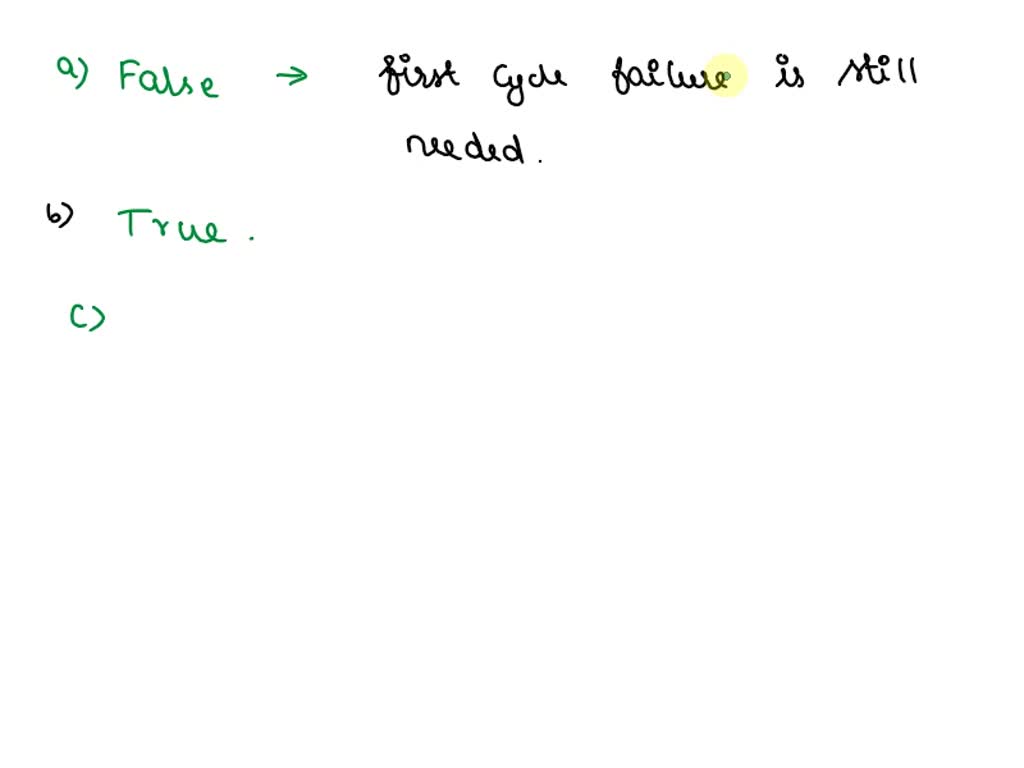 a) False → first cycle failure is still
needed.
b) True.
c)